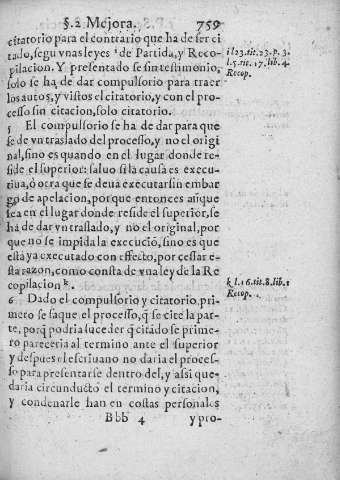 §.2 Mejora. 759
citatorio para el contrario que ha de ser ci
tado, segũ vnas leyes i de Partida, y Reco-
pilacion. Y presentado se sin testimonio,
solo se ha de dar compulsorio para traer
los autos, y vistos el citatorio, y con el pro-
cesso sin citacion, solo citatorio.
i l.23.tit.23.p.3.
l.5.tit.17.lib.4.
Recop.
5 El compulsorio se ha de dar para que
se de vn traslado del processo, y no el origi
nal, sino es quando en el lugar donde re-
side el superior: saluo si la causa es execu-
tiua, ò otra que se deua executar sin embar
go de apelacion, porque entonces aũque
sea en el lugar donde reside el superior, se
ha de dar vn traslado, y no el original, por
que no se impida la execuciō, sino es que
està ya executado con effecto, por cessar e-
sta razon, como consta de vna ley de la Re
copilacion k.
k l.16.tit.8.lib.1
Recop.
6 Dado el compulsorio y citatorio, pri-
mero se saque el processo, q̃ se cite la par-
te, porq̃ podria suceder q̃ citado se prime-
ro pareceria al termino ante el superior
y despues el escriuano no daria el proces-
so para presentarse dentro del, y assi que-
daria circunducto el termino y citacion,
y condenarle han en costas personales
Bbb 4 y pro-